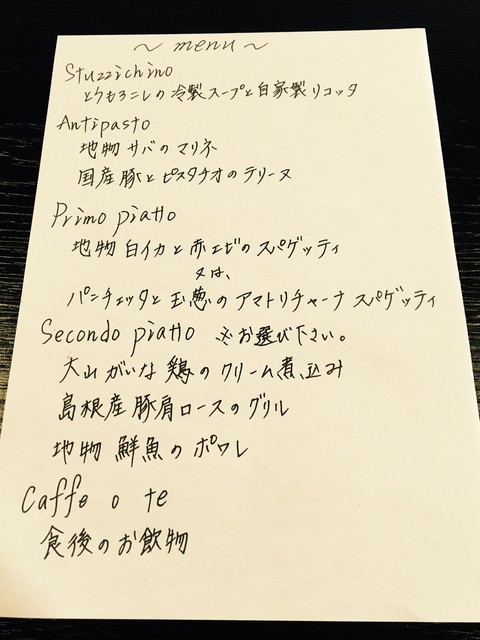 ～ menu ～
Stuzzichino
とうもろこしの冷製スープと自家製リコッタ
Antipasto
地物サバのマリネ
国産豚とピスタチオのテリーヌ
Primo piatto
地物白イカと赤エビのスパゲッティ
又は、
パンチェッタと玉葱のアマトリチャーナスパゲッティ
Secondo piatto ※お選び下さい。
大山がいな鶏のクリーム煮込み
島根産豚肩ロースのグリル
地物 鮮魚のポワレ
Caffe o te
食後のお飲物